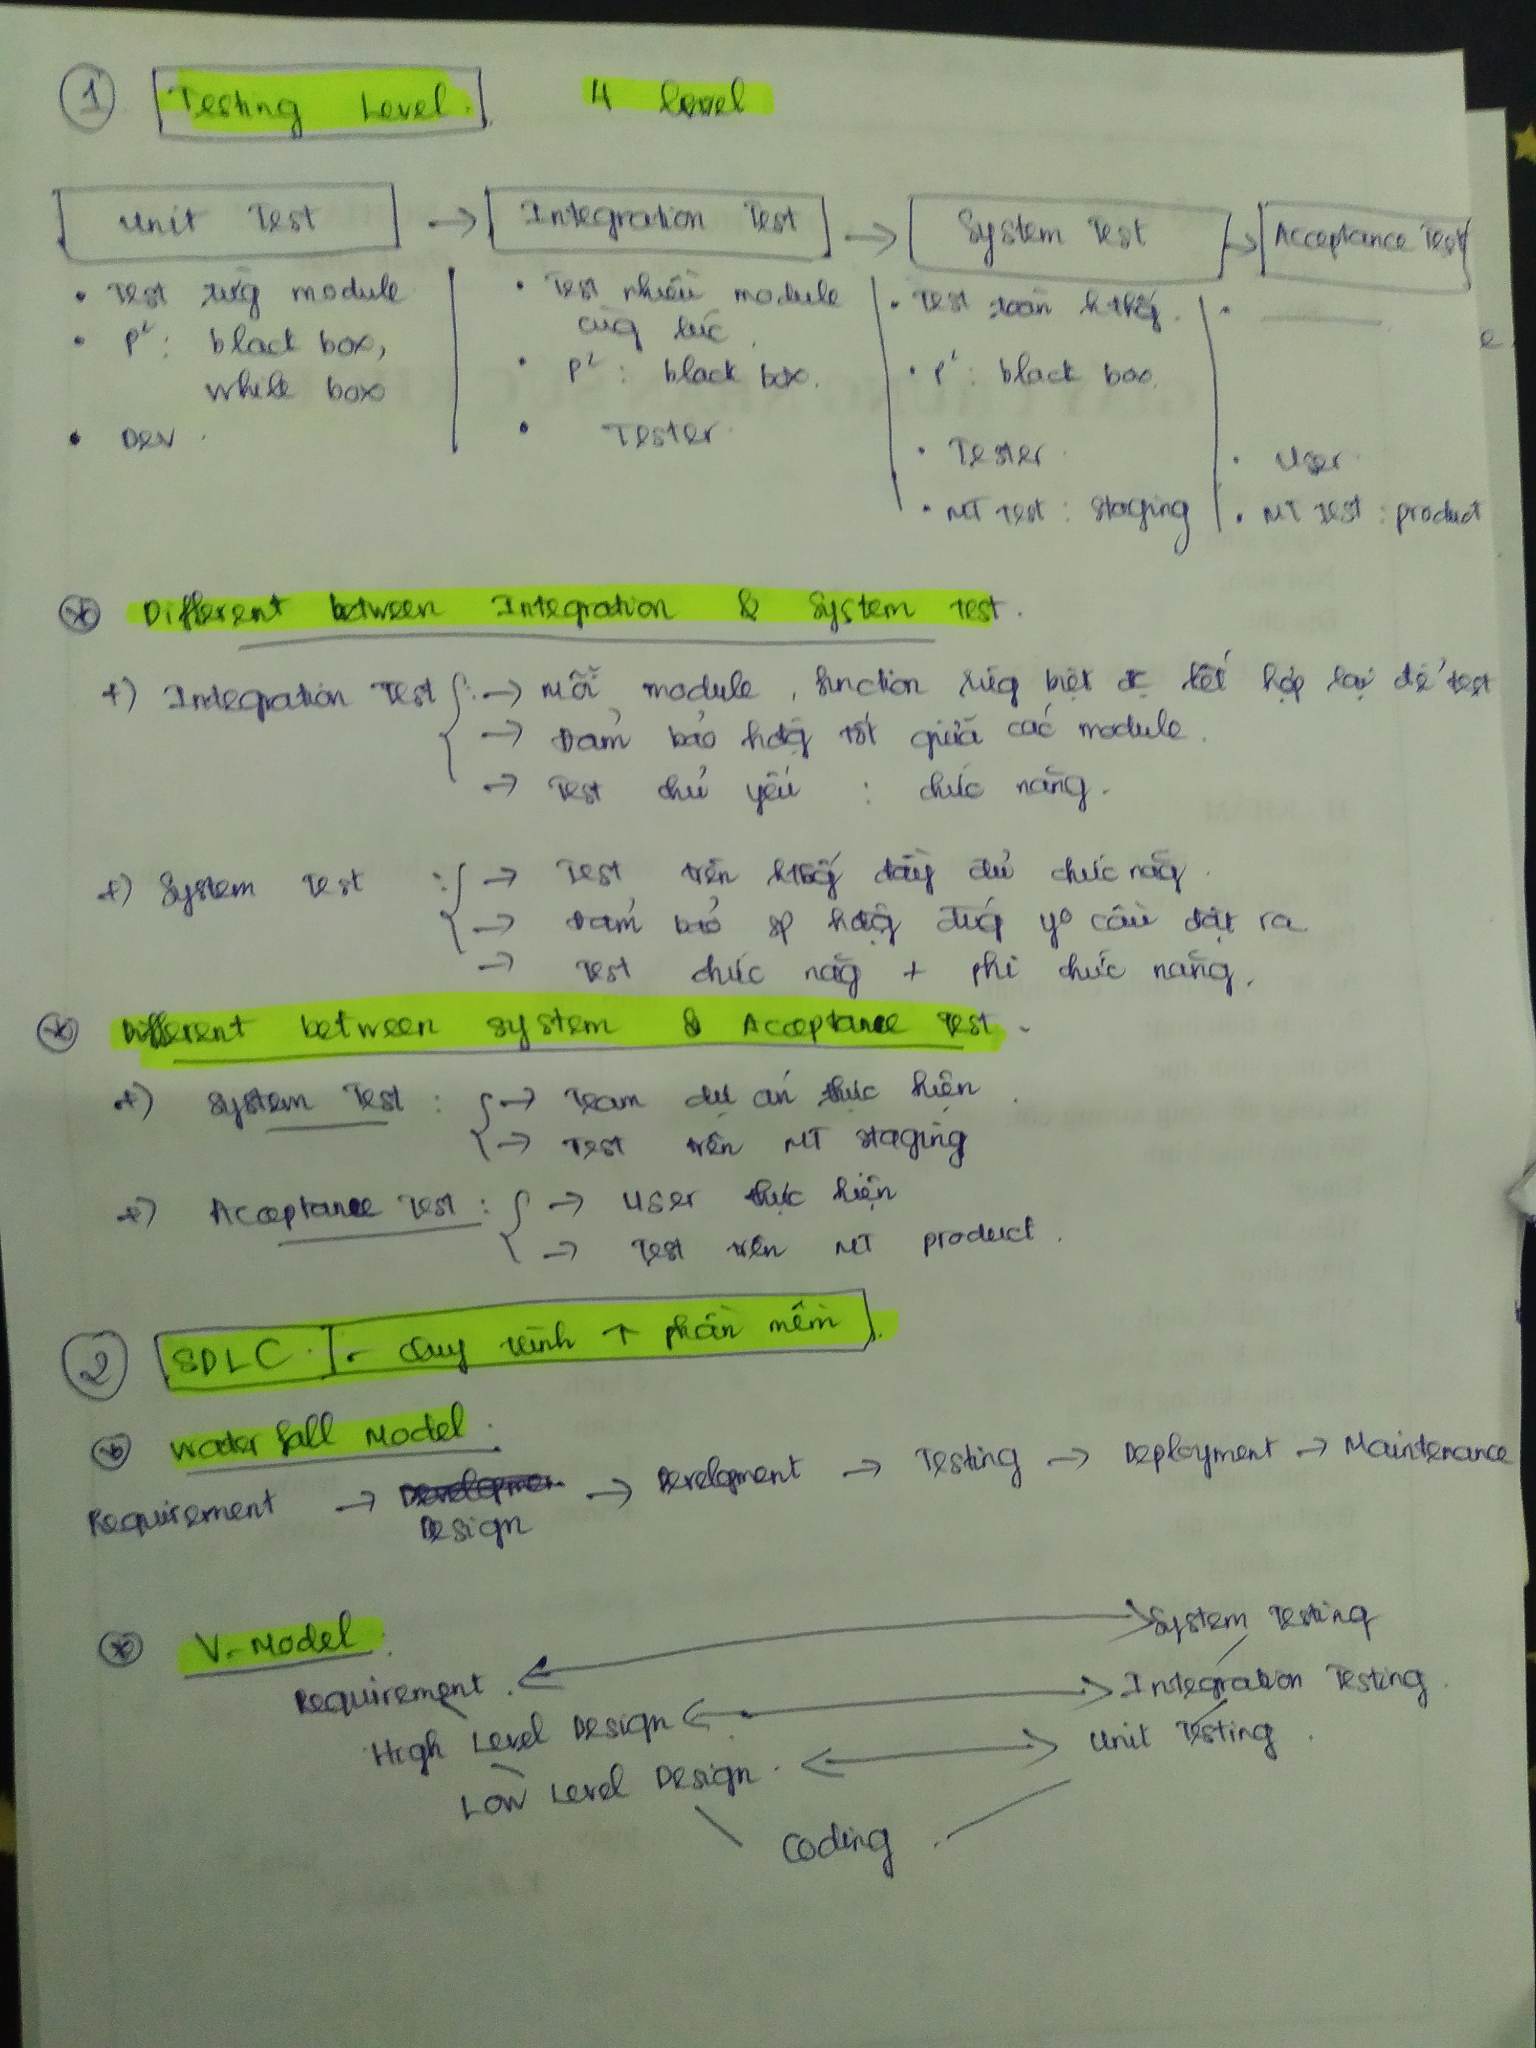 1 Testing Level. 4 level
Unit Test → Integration Test → System Test → Acceptance Test
• Test từg module
• P²: black box,
white box
• Dev.
• Test nhiều module
cùg lúc.
• P²: black box.
• Tester.
• Test toàn hthốg.
• P²: black box.
• Tester.
• MT Test: staging
•
• User.
• MT Test: product
Different between Integration & System test.
+) Integration Test: → Mỗi module, function riêg biệt đc kết hợp lại để test
→ Đảm bảo hđộg tốt giữa các module.
→ Test chủ yếu: chức năng.
+) System Test: → Test trên hthốg đầy đủ chức năg.
→ Đảm bảo sp hđộg đúg yº cầu đặt ra
→ Test chức năg + phi chức năng.
Different between system & Acceptance Test.
+) System Test: → Team dự án thực hiện.
→ Test trên MT staging
+) Acceptance Test: → User thực hiện
→ Test trên MT product.
2 SDLC. - Quy trình ↑ phần mềm.
Waterfall Model.
Requirement → Design → Development → Testing → Deployment → Maintenance
V-Model.
Requirement. ↔ System Testing
High Level Design ↔ Integration Testing.
Low Level Design. ↔ Unit Testing.
Coding